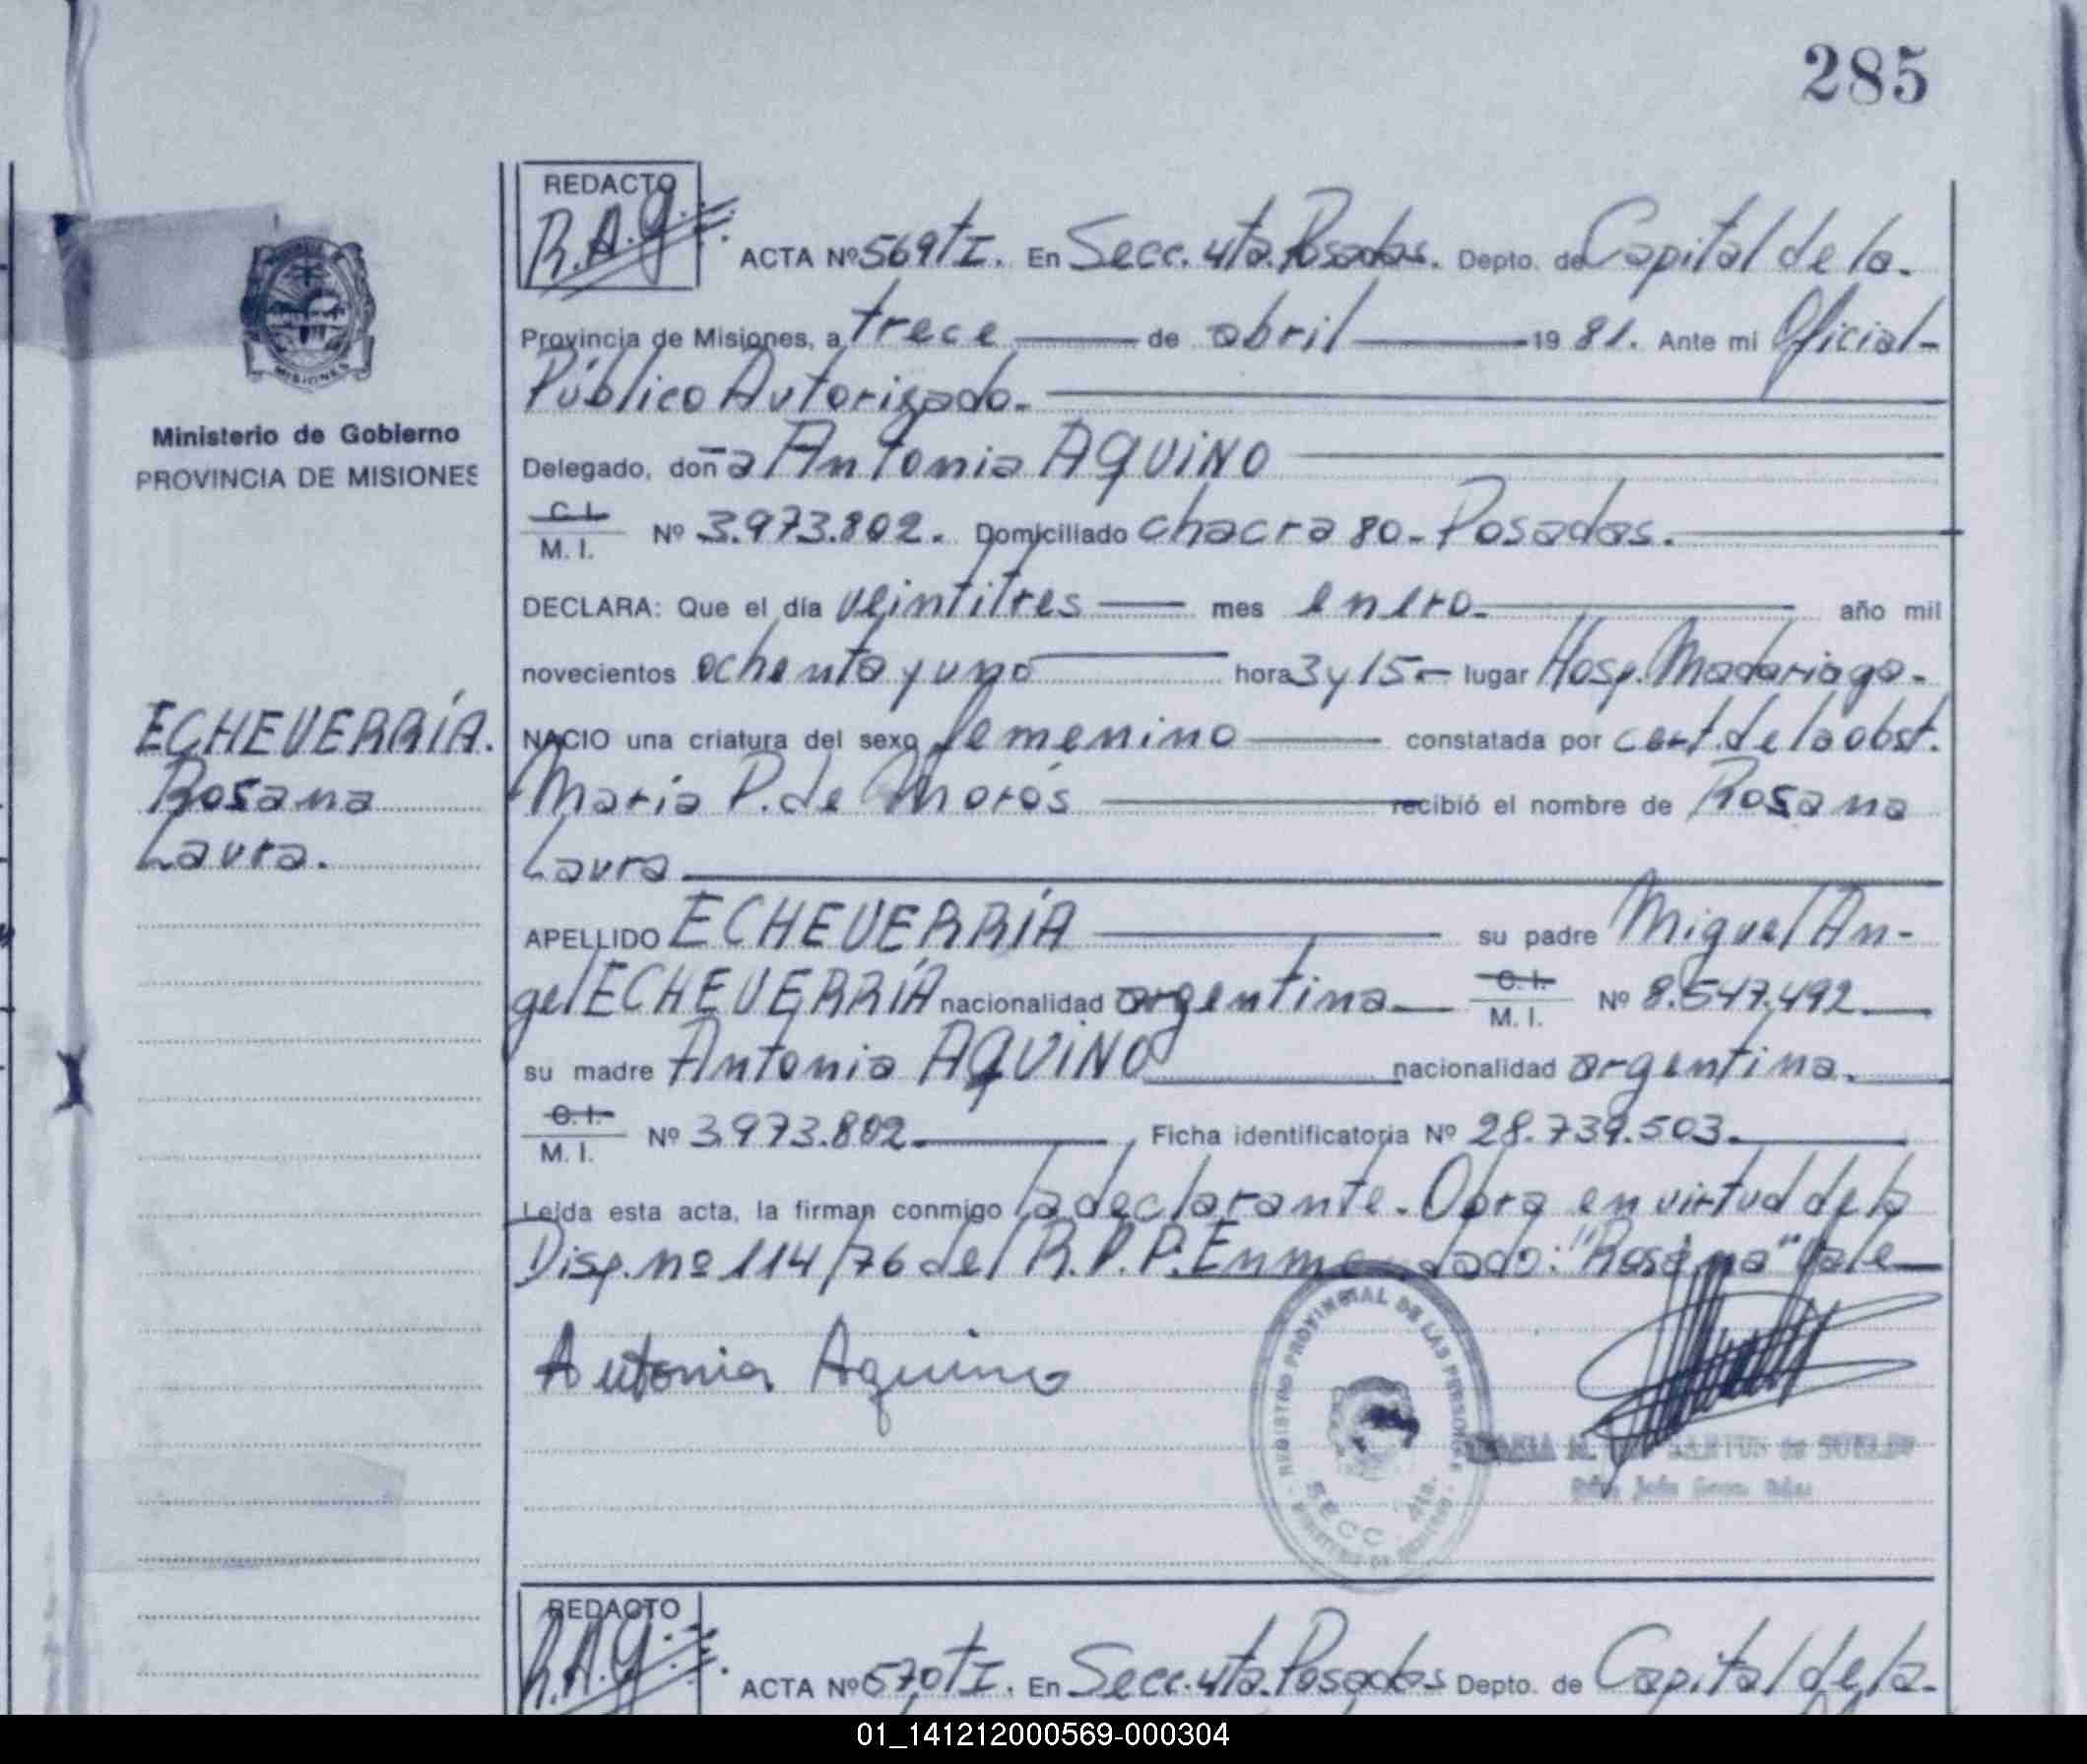 285
REDACTO
R.A.G.
ACTA Nº 569 TI. En Secc. 4ta. Posadas. Depto. de Capital de la.
Provincia de Misiones, a trece de abril 19 81. Ante mi Oficial-
Público Autorizado.
Delegado, doña Antonia AQUINO
C. I.
M. I. Nº 3.973.802. Domiciliado chacra 80 - Posadas.
DECLARA: Que el día veintitres mes enero. año mil
novecientos ochenta y uno hora 3 y 15.- lugar Hosp. Madariaga.
NACIO una criatura del sexo femenino constatada por cert. de la obst.
Maria P. de Morós recibió el nombre de Rosana
Laura
APELLIDO ECHEVERRÍA su padre Miguel An-
gel ECHEVERRÍA nacionalidad argentina C. I.
M. I. Nº 8.547.492
su madre Antonia AQUINO nacionalidad argentina.
C. I.
M. I. Nº 3.973.802. , Ficha identificatoria Nº 28.739.503.
Leída esta acta, la firman conmigo la declarante. Obra en virtud de la
Disp. nº 114/76 del R.P.P. Enmendado: "Rosana" Vale
Antonia Aquino
REGISTRO PROVINCIAL DE LAS PERSONAS
SECC. 4ta.
MISIONES
Ministerio de Gobierno
PROVINCIA DE MISIONES
ECHEVERRÍA.
Rosana
Laura.
REDACTO
R.A.G.
ACTA Nº 570 TI. En Secc. 4ta. Posadas Depto. de Capital de la.
01_141212000569-000304